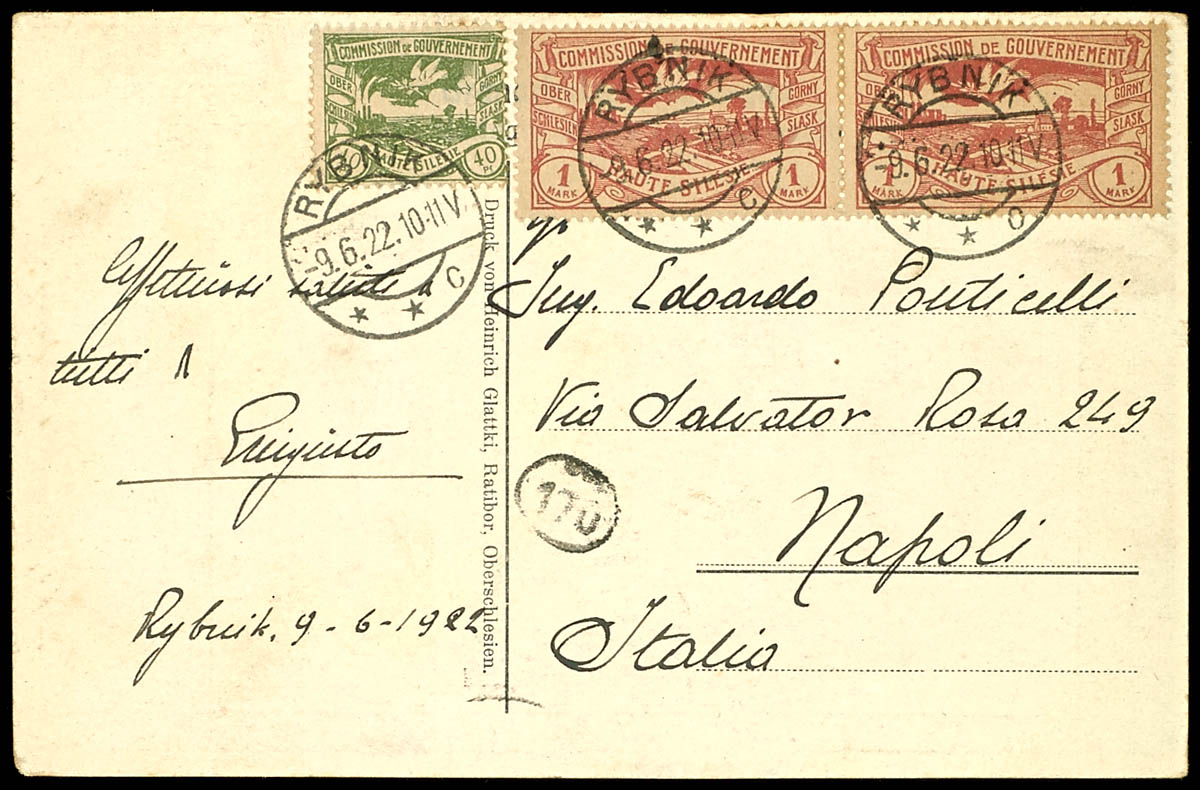 COMMISSION DE GOUVERNEMENT
OBER SCHLESIEN
GÓRNY ŚLĄSK
HAUTE SILESIE
40 40
PF
COMMISSION DE GOUVERNEMENT
OBER SCHLESIEN
GÓRNY ŚLĄSK
HAUTE SILESIE
1 MARK 1 MARK
COMMISSION DE GOUVERNEMENT
OBER SCHLESIEN
GÓRNY ŚLĄSK
HAUTE SILESIE
1 MARK 1 MARK
RYBNIK
-9.6.22.10-11V.
* * C
RYBNIK
-9.6.22.10-11V.
* * C
RYBNIK
-9.6.22.10-11V.
* * C
Affettuosi saluti a
tutti
Rybnik, 9-6-1922
Druck von Heinrich Glattki, Ratibor, Oberschlesien.
Ing. Edoardo Ponticelli
Via Salvator Rosa 249
170
Napoli
Italia